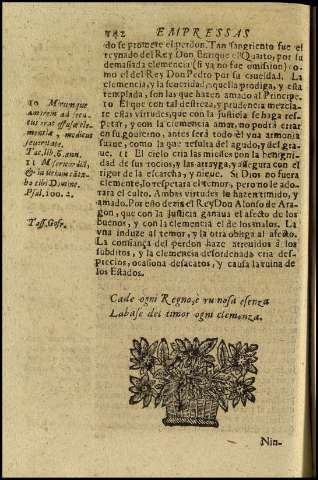 142 EMPRESSAS
do se promete el perdon. Tan sangriento fue el
reynado del Rey Don Enrique el Quarto, por su
demasiada clemencia (si ya no fue omision) co-
mo el del Rey Don Pedro por su crueldad. La
clemencia, y la seueridad, aquella prodiga, y esta
templada, son las que hazen amado al Principe.
10 El que con tal destreza, y prudencia mezcla-
re estas virtudes, que con la justicia se haga res-
petar, y con la clemencia amar, no podrà errar
en su gouierno, antes serà todo èl vna armonia
suaue, como la que resulta del agudo, y del gra-
ue. 11 El cielo cria las miesses con la benigni-
dad de sus rocios, y las arrayga, y assegura con el
rigor de la escarcha, y nieue. Si Dios no fuera
clemente, lo respetara el temor, pero no le ado-
rara el culto. Ambas virtudes le hazen temido, y
amado. Por esto dezia el Rey Don Alonso de Ara-
gon, que con la justicia ganaua el afecto de los
buenos, y con la clemencia el de los malos. La
vna induze al temor, y la otra obliga al afecto.
La confiança del perdon haze atreuidos à los
subditos, y la clemencia desordenada cria des-
precios, ocasiona desacatos, y causa la ruina de
los Estados.
10 Mirumque
amorem ad secu-
tus erat effusæ cle-
mentiæ, modicus
seueritate.
Tac. lib. 6. ann.
11 Misericordiã,
& iudicium cãta-
bo tibi Domine.
Psal. 100. 2.
Tass. Gofr.
Cade ogni Regno, è ruinosa è senza
La base del timor ogni clemenza.
Nin-